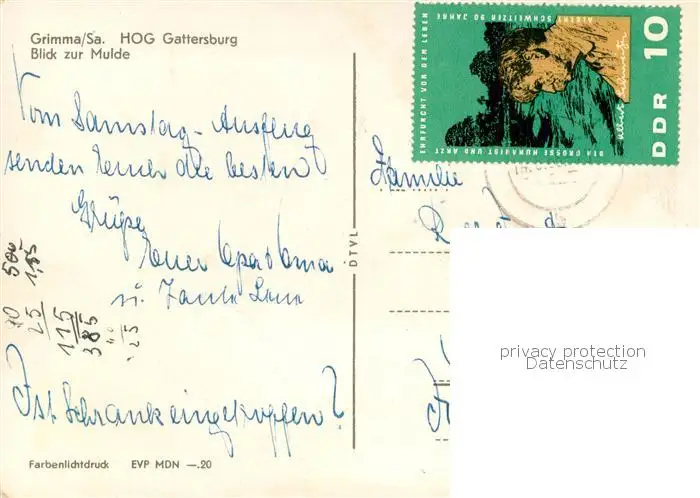 Grimma/Sa. HOG Gattersburg
Blick zur Mulde
Vom Samstag-Ausflug
senden Euch die besten
Grüße
Euer Opa + Oma
u. Tante Lene
Ist Schrank eingetroffen?
500
1,85
70
25
115
385
40
25
Farbenlichtdruck EVP MDN —.20
DTVL
EHRFURCHT VOR DEM LEBEN
ALBERT SCHWEITZER 90 JAHRE
DER GROSSE HUMANIST UND ARZT
DDR 10
Familie
privacy protection
Datenschutz